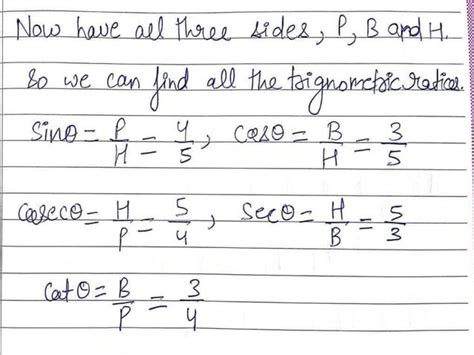 Now have all three sides, P, B and H.
So we can find all the trignometric ratios.
Sinθ = P/H = 4/5, Cosθ = B/H = 3/5
Cosecθ = H/P = 5/4, Secθ = H/B = 5/3
Cotθ = B/P = 3/4